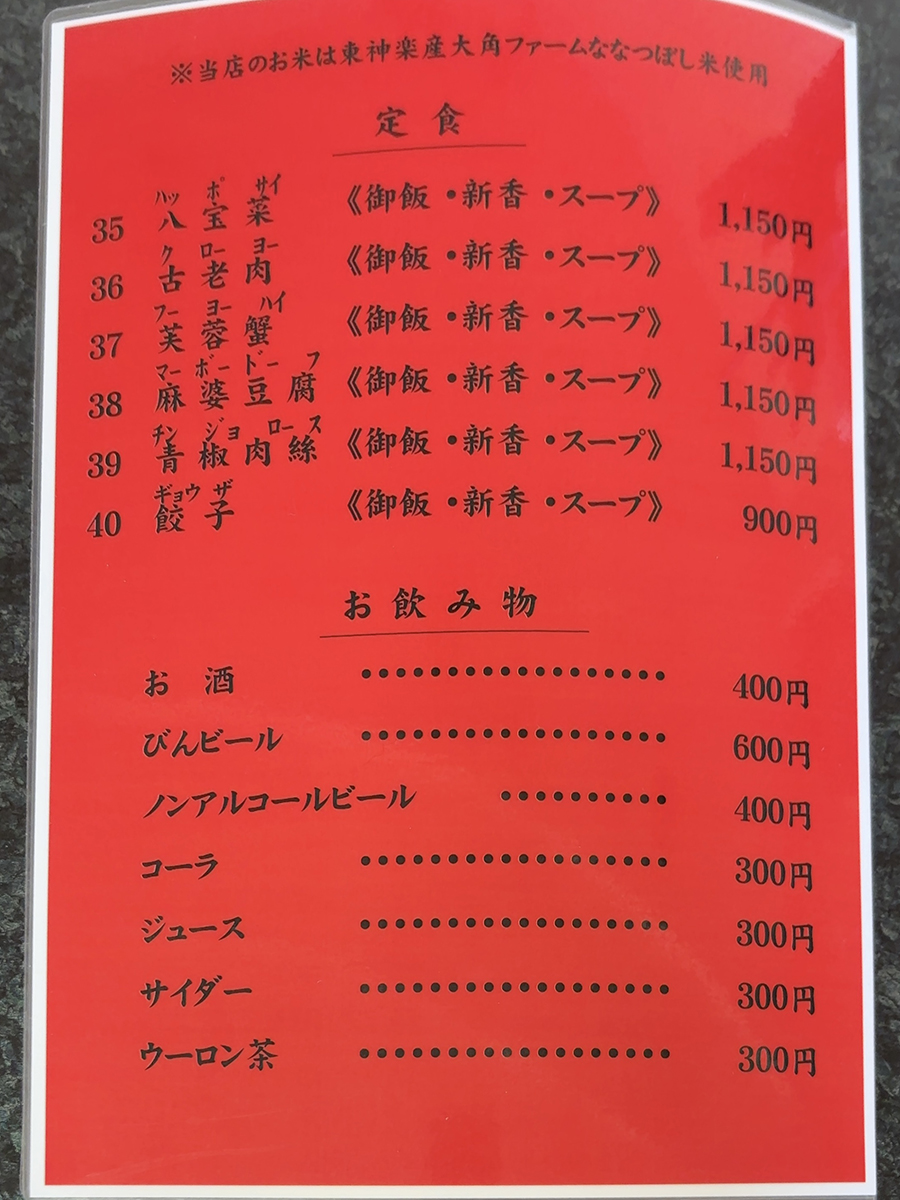 ※当店のお米は東神楽産大角ファームななつぼし米使用
定食
ハッ ポ サイ
35 八宝菜 《御飯・新香・スープ》 1,150円
ク ロー ヨー
36 古老肉 《御飯・新香・スープ》 1,150円
フー ヨー ハイ
37 芙蓉蟹 《御飯・新香・スープ》 1,150円
マー ボー ドー フ
38 麻婆豆腐 《御飯・新香・スープ》 1,150円
チン ジョ ロー ス
39 青椒肉絲 《御飯・新香・スープ》 1,150円
ギョウ ザ
40 餃子 《御飯・新香・スープ》 900円
お飲み物
お酒 ●●●●●●●●●●●●●●●●●● 400円
びんビール ●●●●●●●●●●●●●●●●●● 600円
ノンアルコールビール ●●●●●●●●●● 400円
コーラ ●●●●●●●●●●●●●●●●●● 300円
ジュース ●●●●●●●●●●●●●●●●●● 300円
サイダー ●●●●●●●●●●●●●●●●●● 300円
ウーロン茶 ●●●●●●●●●●●●●●●●●● 300円